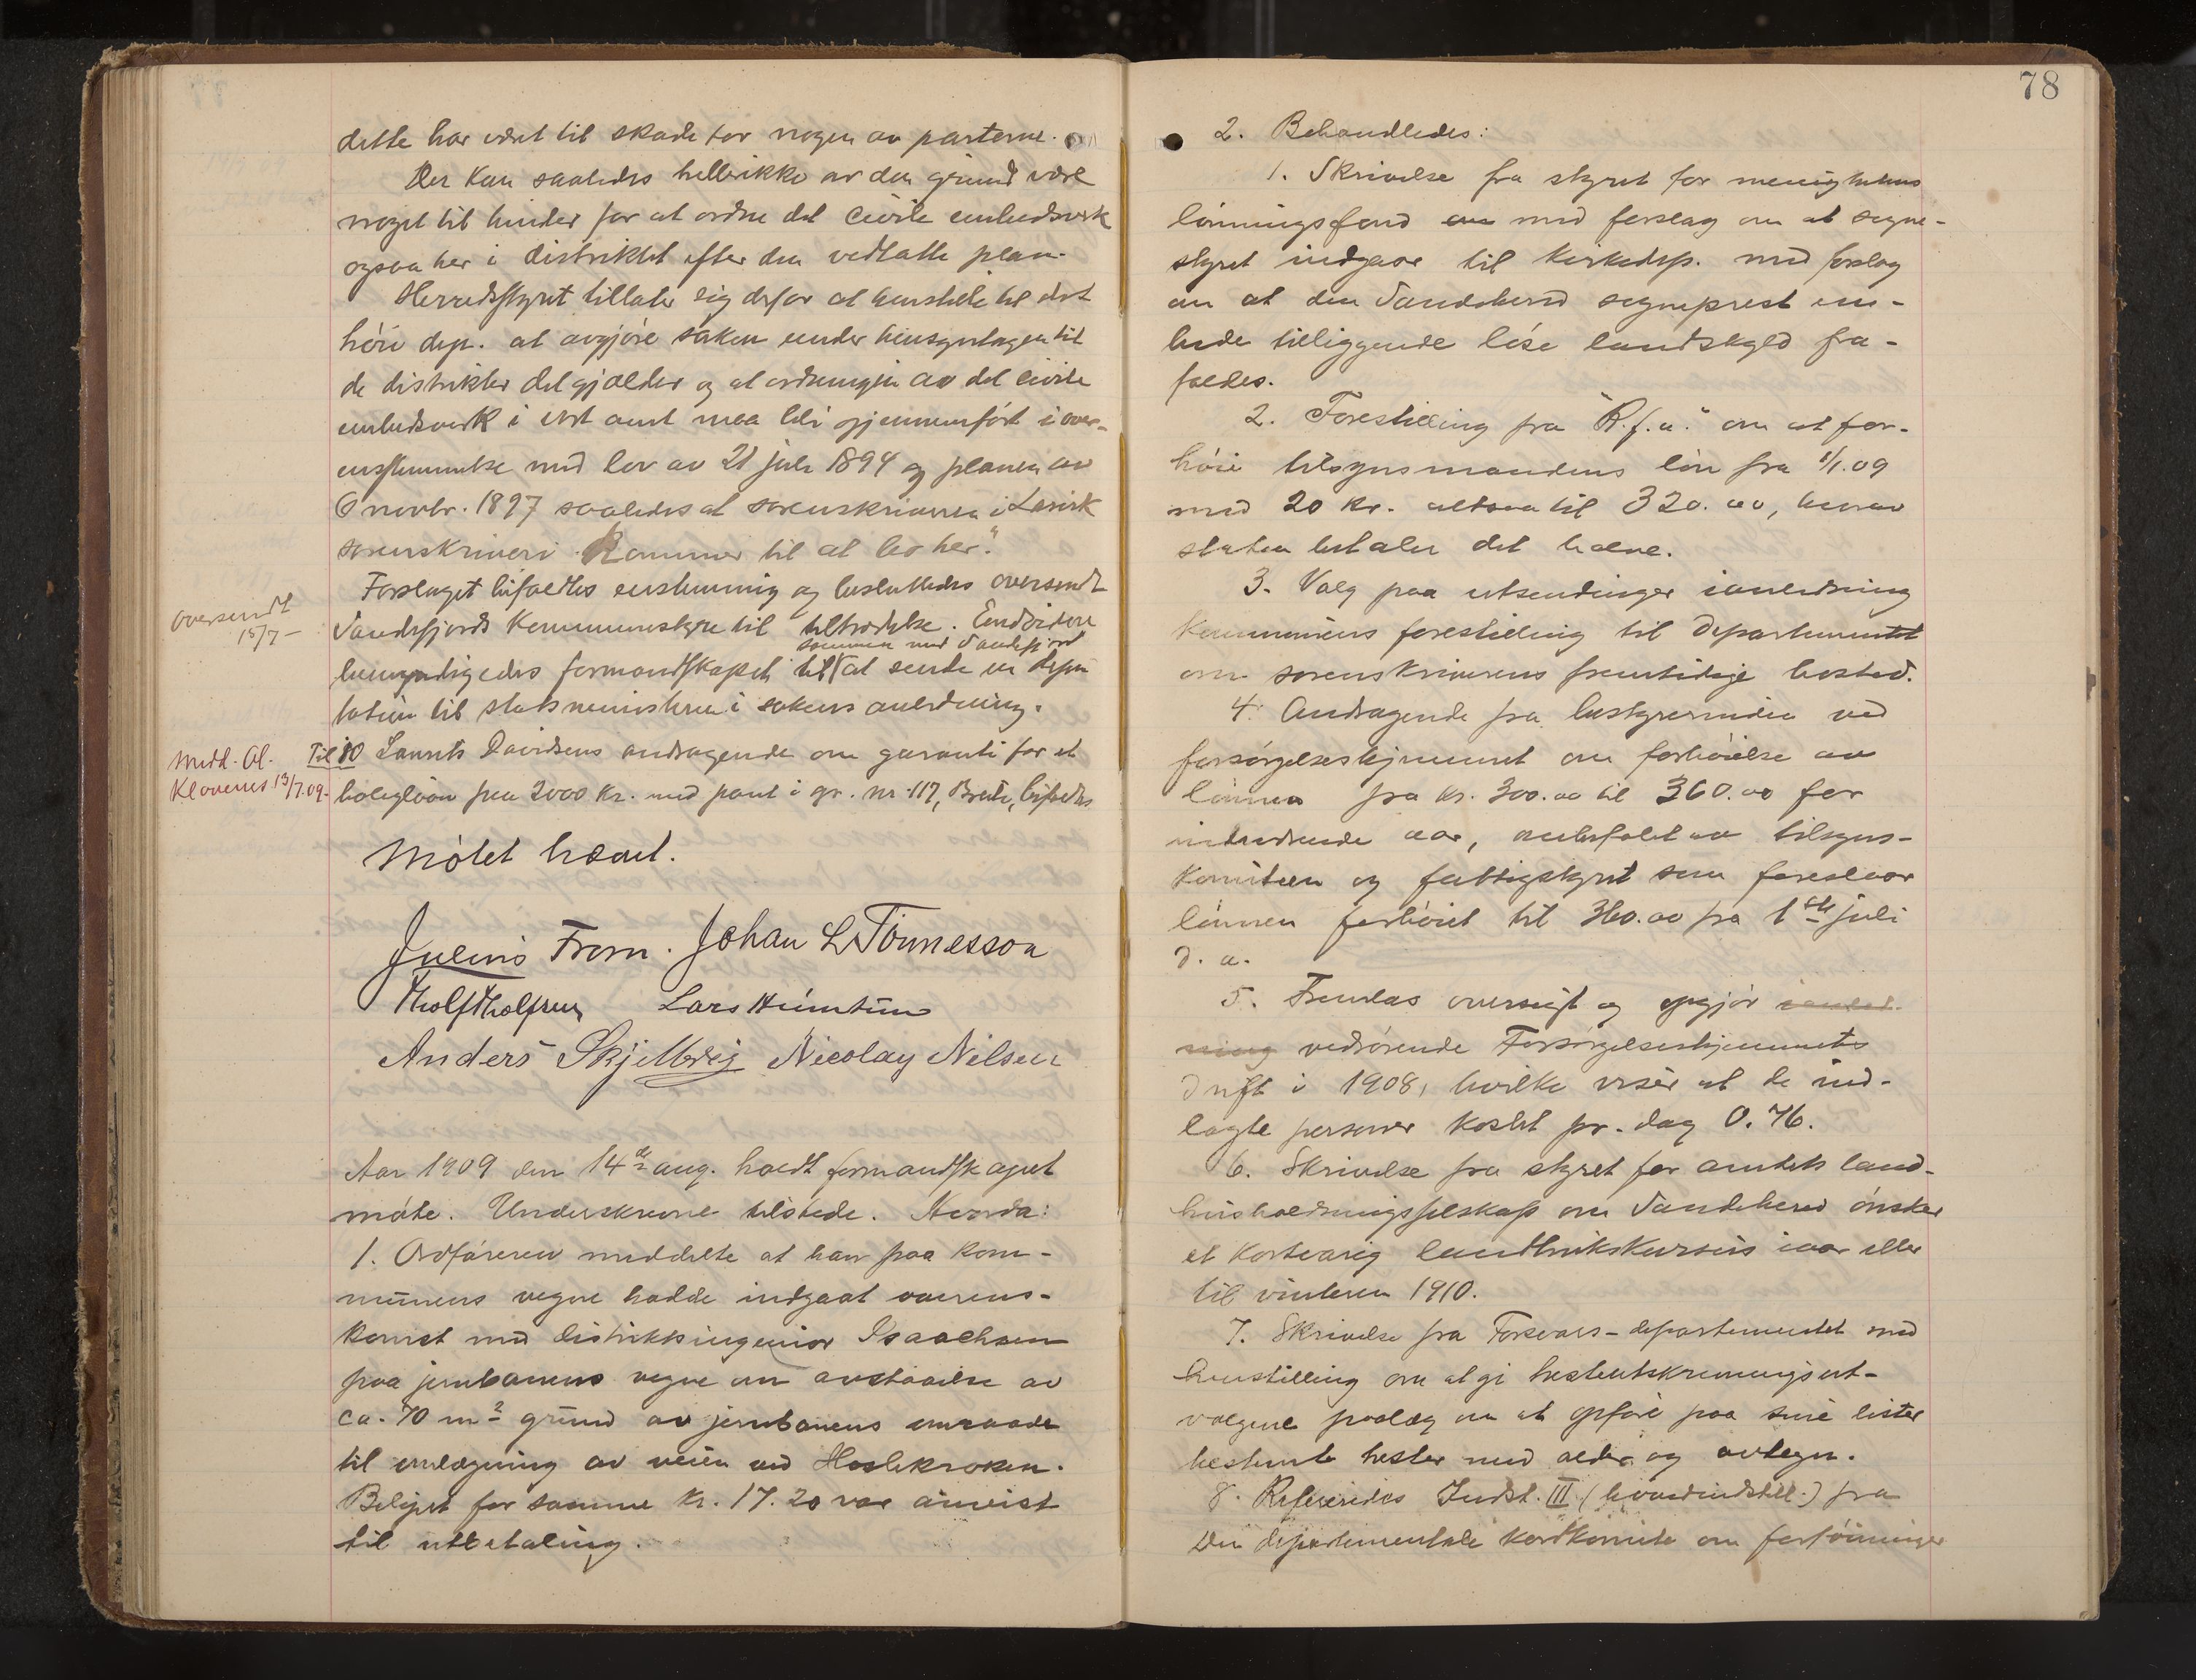 dette har været til skade for nogen av parterne.
Der kan saaledes hellerikke av den grund være
noget til hinder for at ordne det civile embedsverk
ogsaa her i distriktet efter den vedtatte plan.
Herredsstyret tillater sig derfor at henstille til det
høie dep. at avgjøre saken under hensyntagen til
de distrikter det gjælder og at ordningen av det civile
embedsverk i vort amt maa bli gjennemført i over-
ensstemmelse med lov av 21 juli 1894 og planen av
6 novbr. 1897 saaledes at sorenskriveren i Larvik
sorenskriveri kommer til at bo her."
Forslaget bifaldtes enstemmig og besluttedes oversendt
Sandefjords kommunestyre til tiltrædelse. Endvidere
sammen med Sandefjord
bemyndigedes formandskapet til at sende en depu
tation til statsministeren i sakens anledning.
oversendt
15/7 -
Til 10 Laurits Davidsens andragende om garanti for et
boliglaan paa 2000 kr. med pant i gr. nr. 117, Brede, bifaldtes
Medd. Al.
Klavenes 13/7.09.
Møtet hævet.
Julius From. Johan L Tönnesson
Tholf Tholfsen Lars Himtun
Anders Skjelbreig Nicolay Nilsen
Aar 1909 den 14de aug. holdt formandskapet
møte. Underskrevne tilstede. Hvorda:
1. Ordføreren meddelte at han paa kom-
munens vegne hadde indgaat overens-
komst med distriktsingeniør Isaachsen
paa jernbanens vegne om avstaaelse av
ca. 70 m2 grund av jernbanens omraade
til omlægning av veien ved Haslekroken.
Beløpet for samme kr. 17.20 var anvist
til utbetaling.
78
2. Behandledes:
1. Skrivelse fra styret for menighetens
lønningsfond med forslag om at sogne-
styret indgaar til Kirkedep. med forslag
om at den Sandeherred sogneprest em-
bede tilliggende løse landskyld fra-
faldes.
2. Forestilling fra "R.f.a." om at for-
høie tilsynsmandens løn fra 1/1.09
med 20 kr. altsaa til 320.00, hvorav
staten betaler det halve.
3. Valg paa utsendinger i anledning
kommunens forestilling til Departementet
om sorenskriverens fremtidige bosted.
4. Andragende fra bestyrerinden ved
forsørgelseshjemmet om forhøielse av
lønnen fra kr. 300.00 til 360.00 for
indeværende aar, anbefalet av tilsyns-
komiteen og fattigstyret som foreslaar
lønnen forhøiet til 360.00 fra 1ste juli
d. a.
5. Fremlas oversigt og opgjør
vedrørende Forsørgelseshjemmets
drift i 1908, hvilke viser at de ind-
lagte personer kostet pr. dag 0.76.
6. Skrivelse fra styret for amtets land-
husholdningsselskap om Sandeherred ønsker
et kortvarig landbrukskursus iaar eller
til vinteren 1910.
7. Skrivelse fra Forsvars-departementet med
henstilling om at gi hesteutskrivningsut-
valgene paalæg om at opføre paa sine lister
bestemte hester med alder og avtegn.
8. Refereredes Indst. III (hovedindstill.) fra
Den departementale komite om forføininger